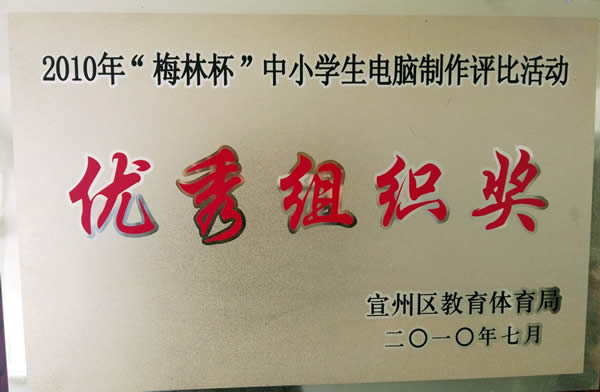 2010年“梅林杯”中小学生电脑制作评比活动
优秀组织奖
宣州区教育体育局
二〇一〇年七月